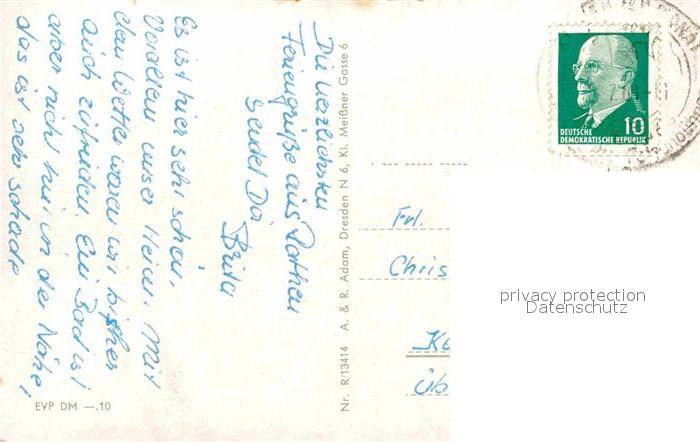 Die herzlichsten
Feriengrüße aus Rathen
sendet Dir
Brita
Es ist hier sehr schön,
Vor allem unser Heim. Mit
dem Wetter waren wir bisher
auch zufrieden. Ein Bad ist
aber nicht hier in der Nähe,
das ist sehr schade.
EVP DM —.10
Nr. R/13414 A. & R. Adam, Dresden N 6, Kl. Meißner Gasse 6
10
DEUTSCHE
DEMOKRATISCHE REPUBLIK
Frl.
Chris
privacy protection
Datenschutz